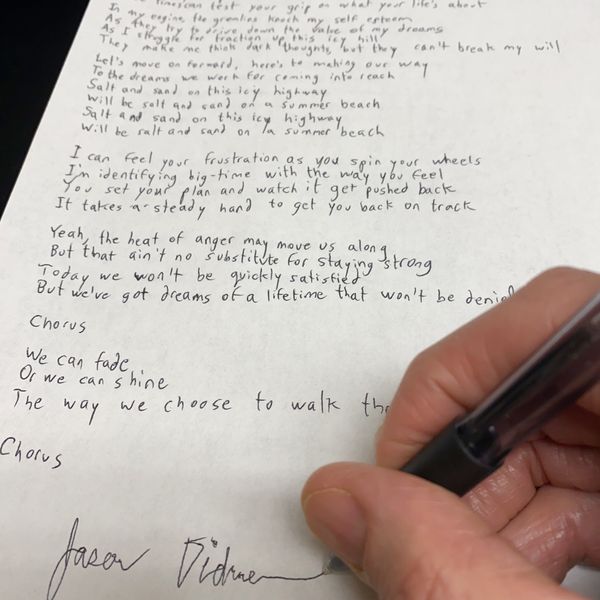 can test your grip on what your life's about
In my engine, the gremlins knock my self esteem
As they try to drive down the value of my dreams
As I struggle for traction up this icy hill
They make me think dark thoughts, but they can't break my will
Let's move on forward, here's to making our way
To the dreams we work for coming into reach
Salt and sand on this icy highway
Will be salt and sand on a summer beach
Salt and sand on this icy highway
Will be salt and sand on a summer beach
I can feel your frustration as you spin your wheels
I'm identifying big-time with the way you feel
You set your plan and watch it get pushed back
It takes a steady hand to get you back on track
Yeah, the heat of anger may move us along
But that ain't no substitute for staying strong
Today we won't be quickly satisfied
But we've got dreams of a lifetime that won't be denie
Chorus
We can fade
Or we can shine
The way we choose to walk
Chorus
Jason